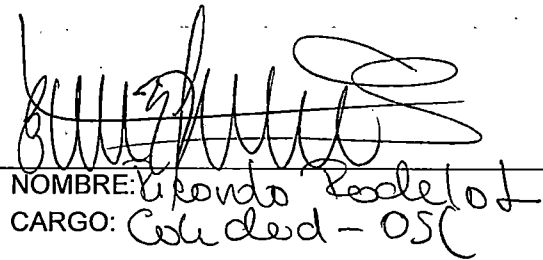 NOMBRE: Ricardo Rodelo L
CARGO: Calidad - OSC